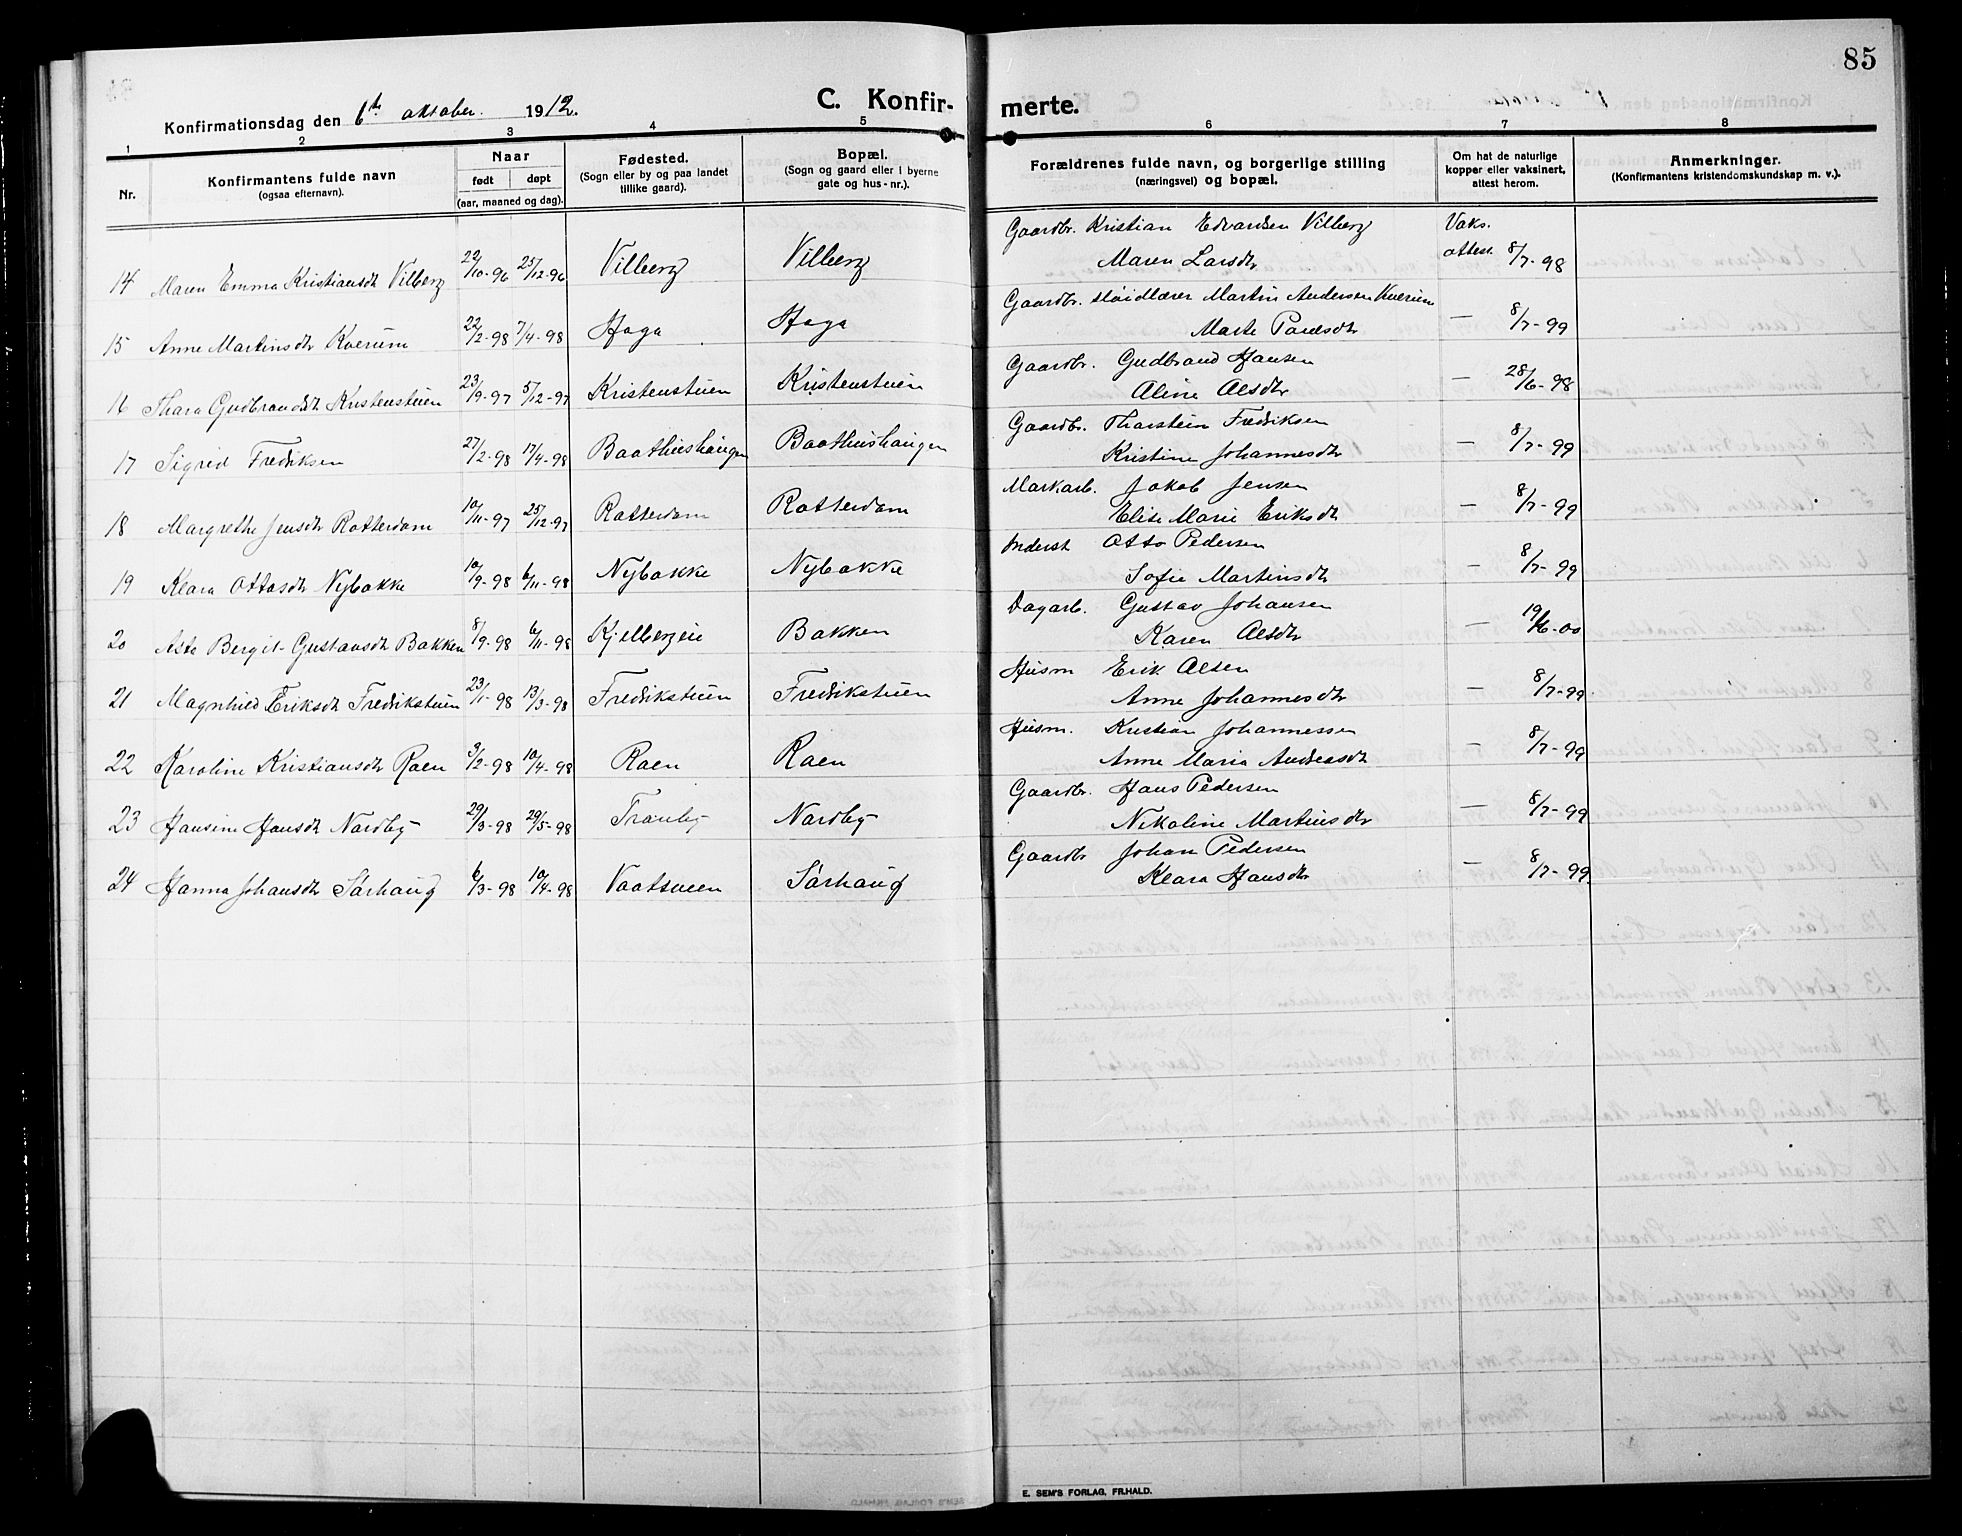 85
C. Konfirmerte.
Konfirmationsdag den 6te oktober. 1912.
1 2 3 4 5 6 7 8
Nr. Konfirmantens fulde navn (ogsaa efternavn). Naar født døpt (aar, maaned og dag). Fødested. (Sogn eller by og paa landet tillike gaard). Bopæl. (Sogn og gaard eller i byerne gate og hus-nr.). Forældrenes fulde navn, og borgerlige stilling (næringsvei) og bopæl. Om hat de naturlige kopper eller vaksinert, attest herom. Anmerkninger. (Konfirmantens kristendomskundskap m. v.).
14 Maren Emma Kristiansdtr Vilberg 22/10-96 25/12-96 Vilberg Vilberg Gaardbr. Kristian Edvardsen Vilberg Vaks.
Maren Larsdtr attest 8/7-98
15 Anne Martinsdtr Kverum 22/2-98 7/4-98 Haga Haga Gaardbr. sløidlærer Martin Andersen Kverum
Marte Paulsdtr — 8/7-99
16 Thora Gudbrandsdtr Kristenstuen 23/9-97 5/12-97 Kristenstuen Kristenstuen Gaardbr. Gudbrand Hansen
Aline Olsdtr — 28/6-98
17 Sigrid Frediksen 27/2-98 17/4-98 Baathushaugen Baathushaugen Gaardbr. Thorstein Fredriksen
Kristine Johannesdtr — 8/7-99
18 Margrethe Jensdtr Rotterdam 10/11-97 25/12-97 Rotterdam Rotterdam Markarb. Jakob Jensen
Elise Marie Eriksdtr — 8/7-99
19 Klara Ottosdtr Nybakke 10/9-98 6/11-98 Nybakke Nybakke Inderst Otto Pedersen
Sofie Martinsdtr — 8/7-99
20 Asta Bergit Gustavsdtr Bakken 8/9-98 6/11-98 Kjelbergeie Bakken Dagarb. Gustav Johansen
Karen Olsdtr — 19/6-00
21 Magnhild Eriksdtr Fredrikstuen 23/1-98 13/3-98 Fredikstuen Fredikstuen Husm Erik Olsen
Anne Johannesdtr — 8/7-99
22 Karoline Kristiansdtr Raen 3/2-98 10/4-98 Raen Raen Husm. Kristian Johannessen
Anne Maria Andersdtr — 8/7-99
23 Hansine Hansdtr Nordby 29/3-98 29/5-98 Tronby Nordby Gaardbr. Hans Pedersen
Nikoline Martinsdtr — 8/7-99
24 Hanna Johansdtr Sørhaug 6/3-98 10/4-98 Vaatsveen Sørhaug Gaardbr Johan Pedersen
Klara Hansdtr — 8/7-99
E. SEM'S FORLAG, FR.HALD.